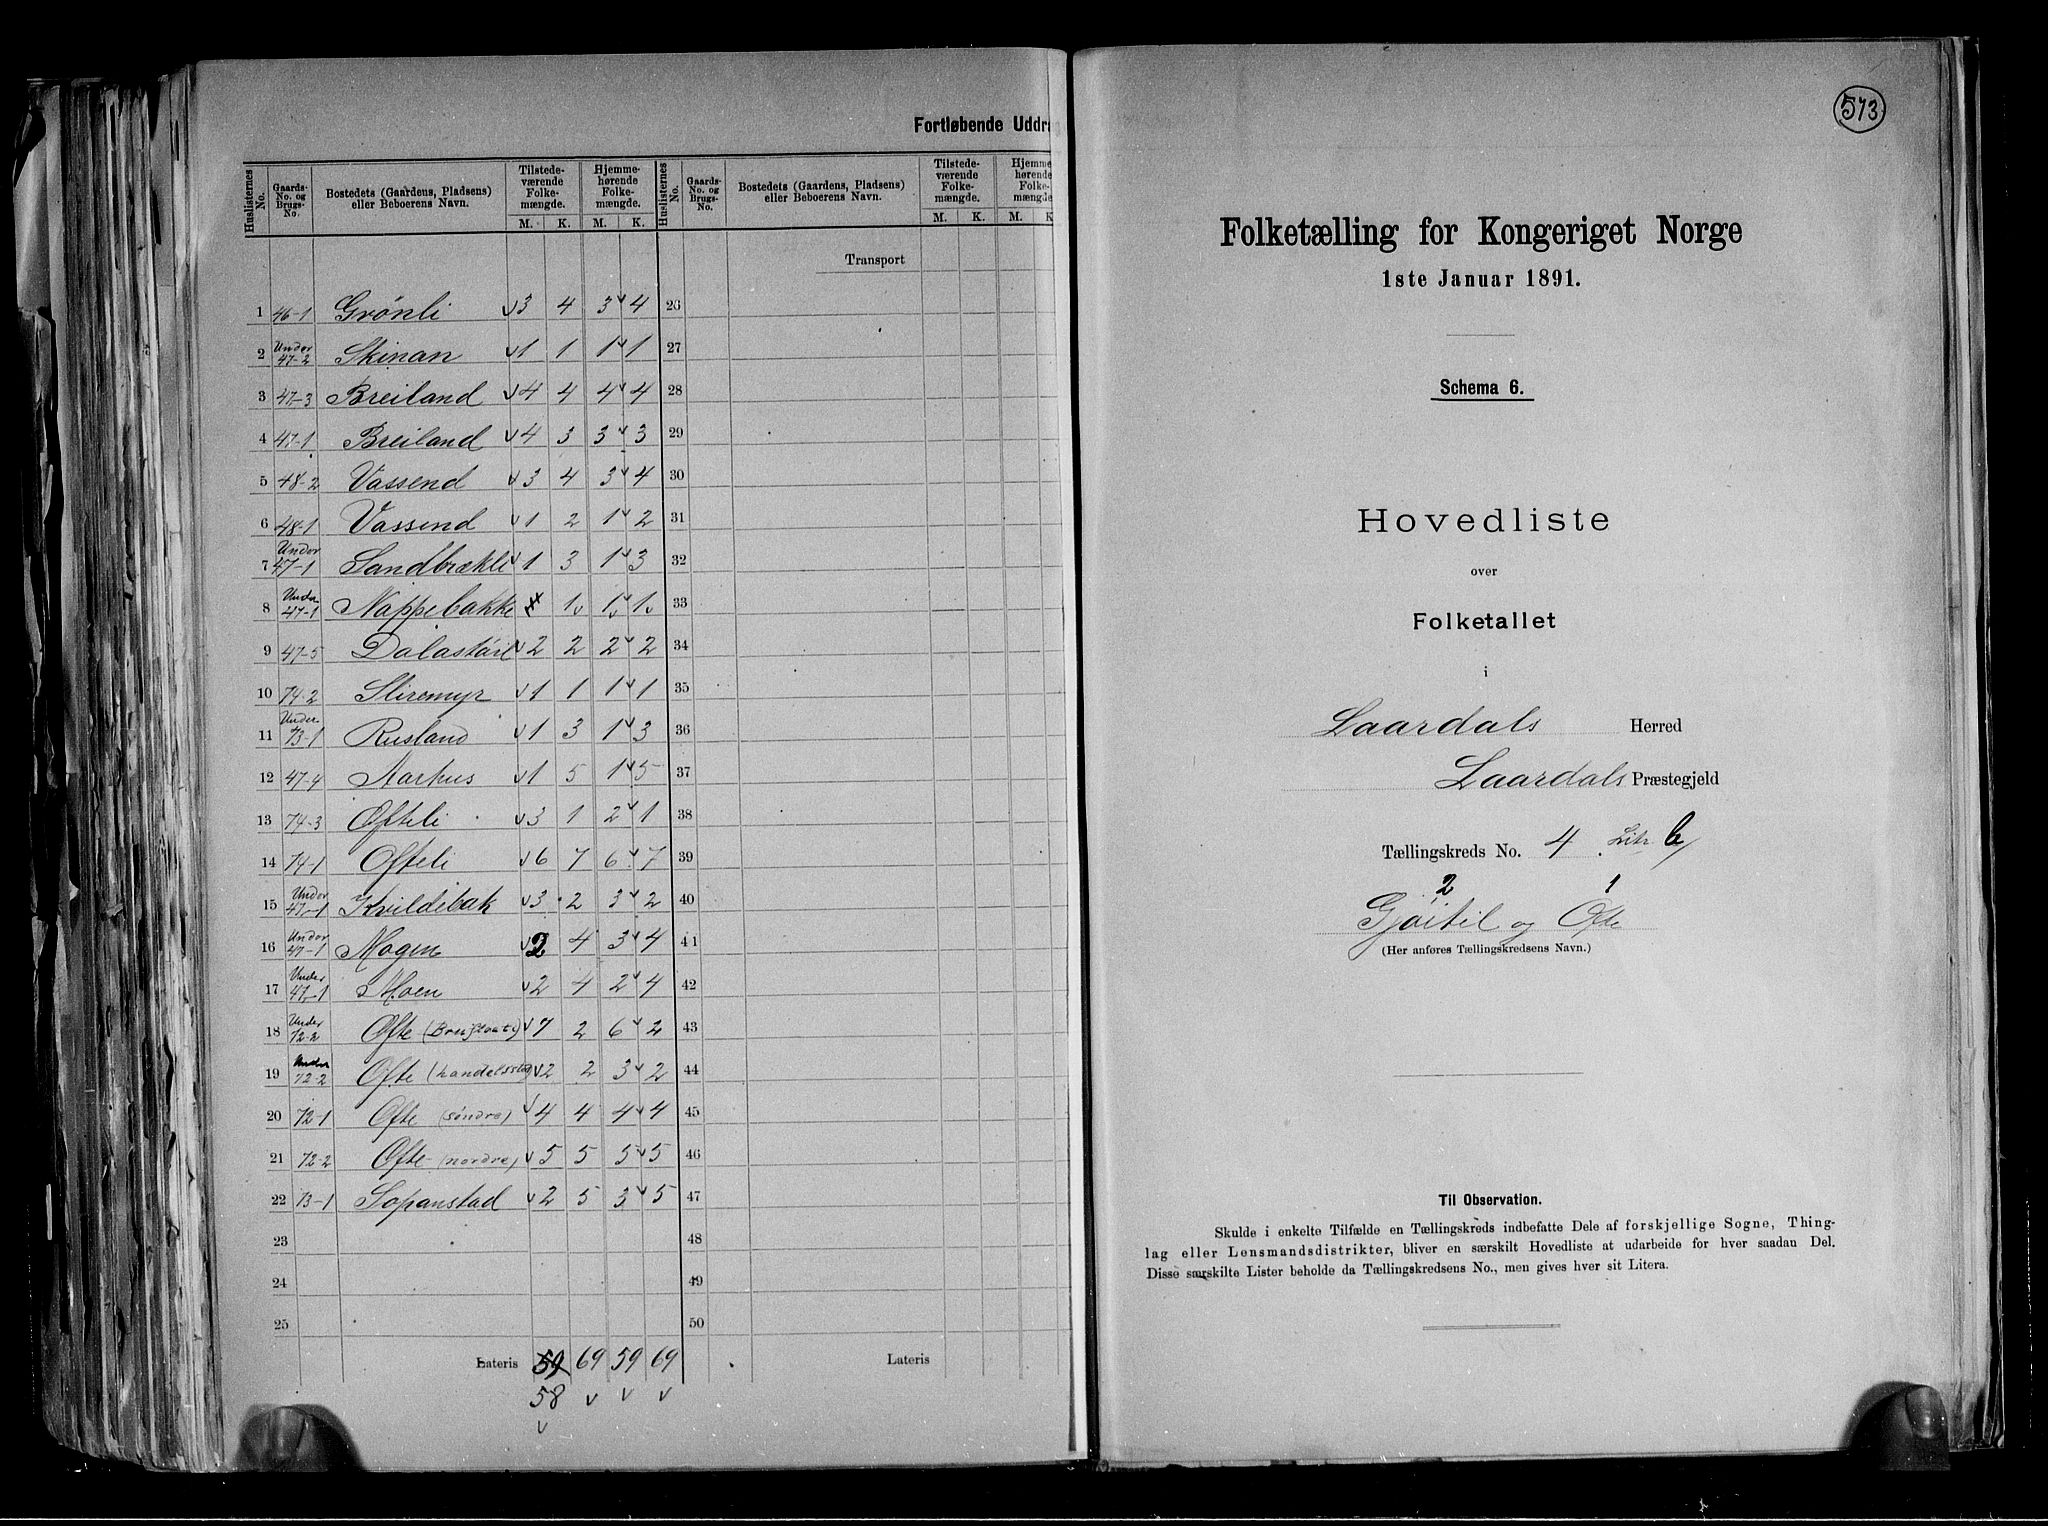 Fortløbende Uddra
Huslisternes No.
Gaards-No. og Brugs-No.
Bostedets (Gaardens, Pladsens) eller Beboerens Navn.
Tilstedeværende Folkemængde.
Hjemmehørende Folkemængde.
M. K. M. K.
Huslisternes No.
Gaards-No. og Brugs-No.
Bostedets (Gaardens, Pladsens) eller Beboerens Navn.
Tilstedeværende Folkemængde.
Hjemmehørende Folkemængde
M. K. M. K
Transport
1 46-1 Grönli 3 4 3 4 26
2 Under 47-2 Skinan 1 1 1 1 27
3 47-3 Breiland 4 4 4 4 28
4 47-1 Breiland 4 3 3 3 29
5 48-2 Vassend 3 4 3 4 30
6 48-1 Vassend 1 2 1 2 31
7 Under 47-1 Sandbrækli 1 3 1 3 32
8 Under 47-1 Nappebakke 1 1 1 33
9 47-5 2 2 2 2 34
10 74-2 Stiremyr 1 1 1 1 35
11 Under 73-1 Rusland 1 3 1 3 36
12 47-4 Aarhus 1 5 1 5 37
13 74-3 Ofteli 3 1 2 1 38
14 74-1 Ofteli 6 7 6 7 39
15 Under 47-1 Kvildebak 3 2 3 2 40
16 Under 47-1 Mogen 2 4 3 4 41
17 Under 47-1 Moen 2 4 2 4 42
18 Under 72-2 Ofte 7 2 6 2 43
19 Under 72-2 Ofte (handelssted) 2 2 3 2 44
20 72-1 Ofte (söndre) 4 4 4 4 45
21 72-2 Ofte (nordre) 5 5 5 5 46
22 73-1 Sopanstad 2 5 3 5 47
23 48
24 49
25 50
Lateris 59 69 59 69 Lateris
58
573
Folketælling for Kongeriget Norge
1ste Januar 1891.
Schema 6.
Hovedliste
over
Folketallet
i
Laardals Herred
Laardals Præstegjeld
Tællingskreds No. 4 Litr b
2 1
Gjöitil og Ofte
(Her anføres Tællingskredsens Navn.)
Til Observation.
Skulde i enkelte Tilfælde en Tællingskreds indbefatte Dele af forskjellige Sogne, Thing-
lag eller Lensmandsdistrikter, bliver en særskilt Hovedliste at udarbeide for hver saadan Del.
Disse særskilte Lister beholde da Tællingskredsens No., men gives hver sit Litera.